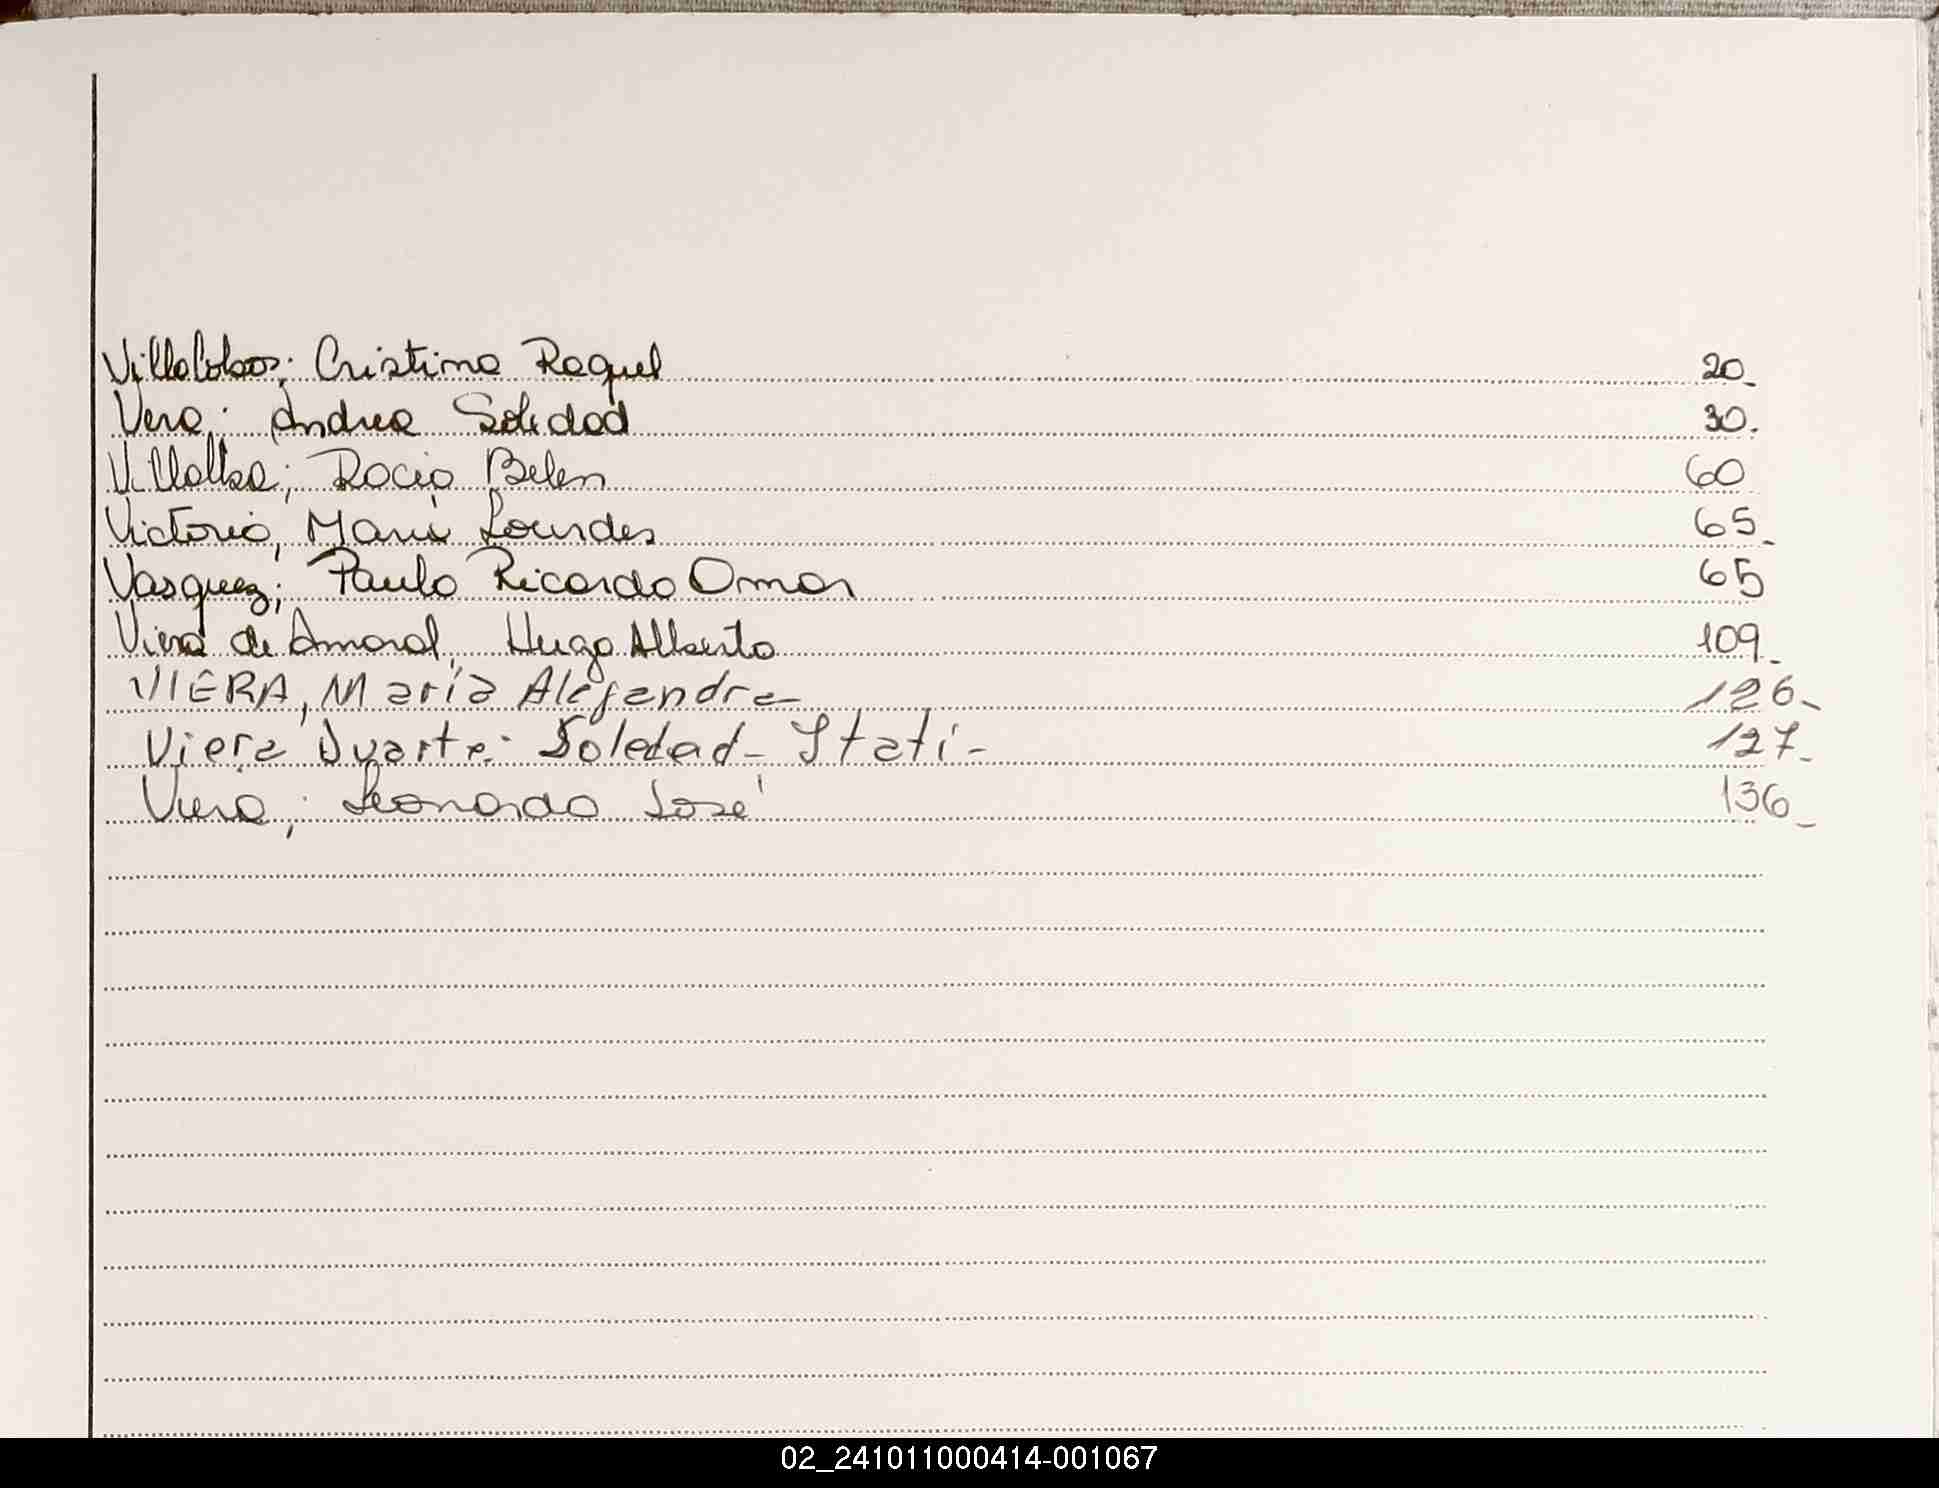 Villalobos; Cristina Raquel 20_
Vera; Andrea Soledad 30.
Villalba; Rocio Belen 60
Victorio, María Lourdes 65_
Vasquez; Paulo Ricardo Omar 65
Viera de Amaral, Hugo Alberto 109_
VIERA, María Alejandra 126_
Viera Duarte: Soledad_ Itatí- 127_
Viera; Leonardo José 136_
02_241011000414-001067